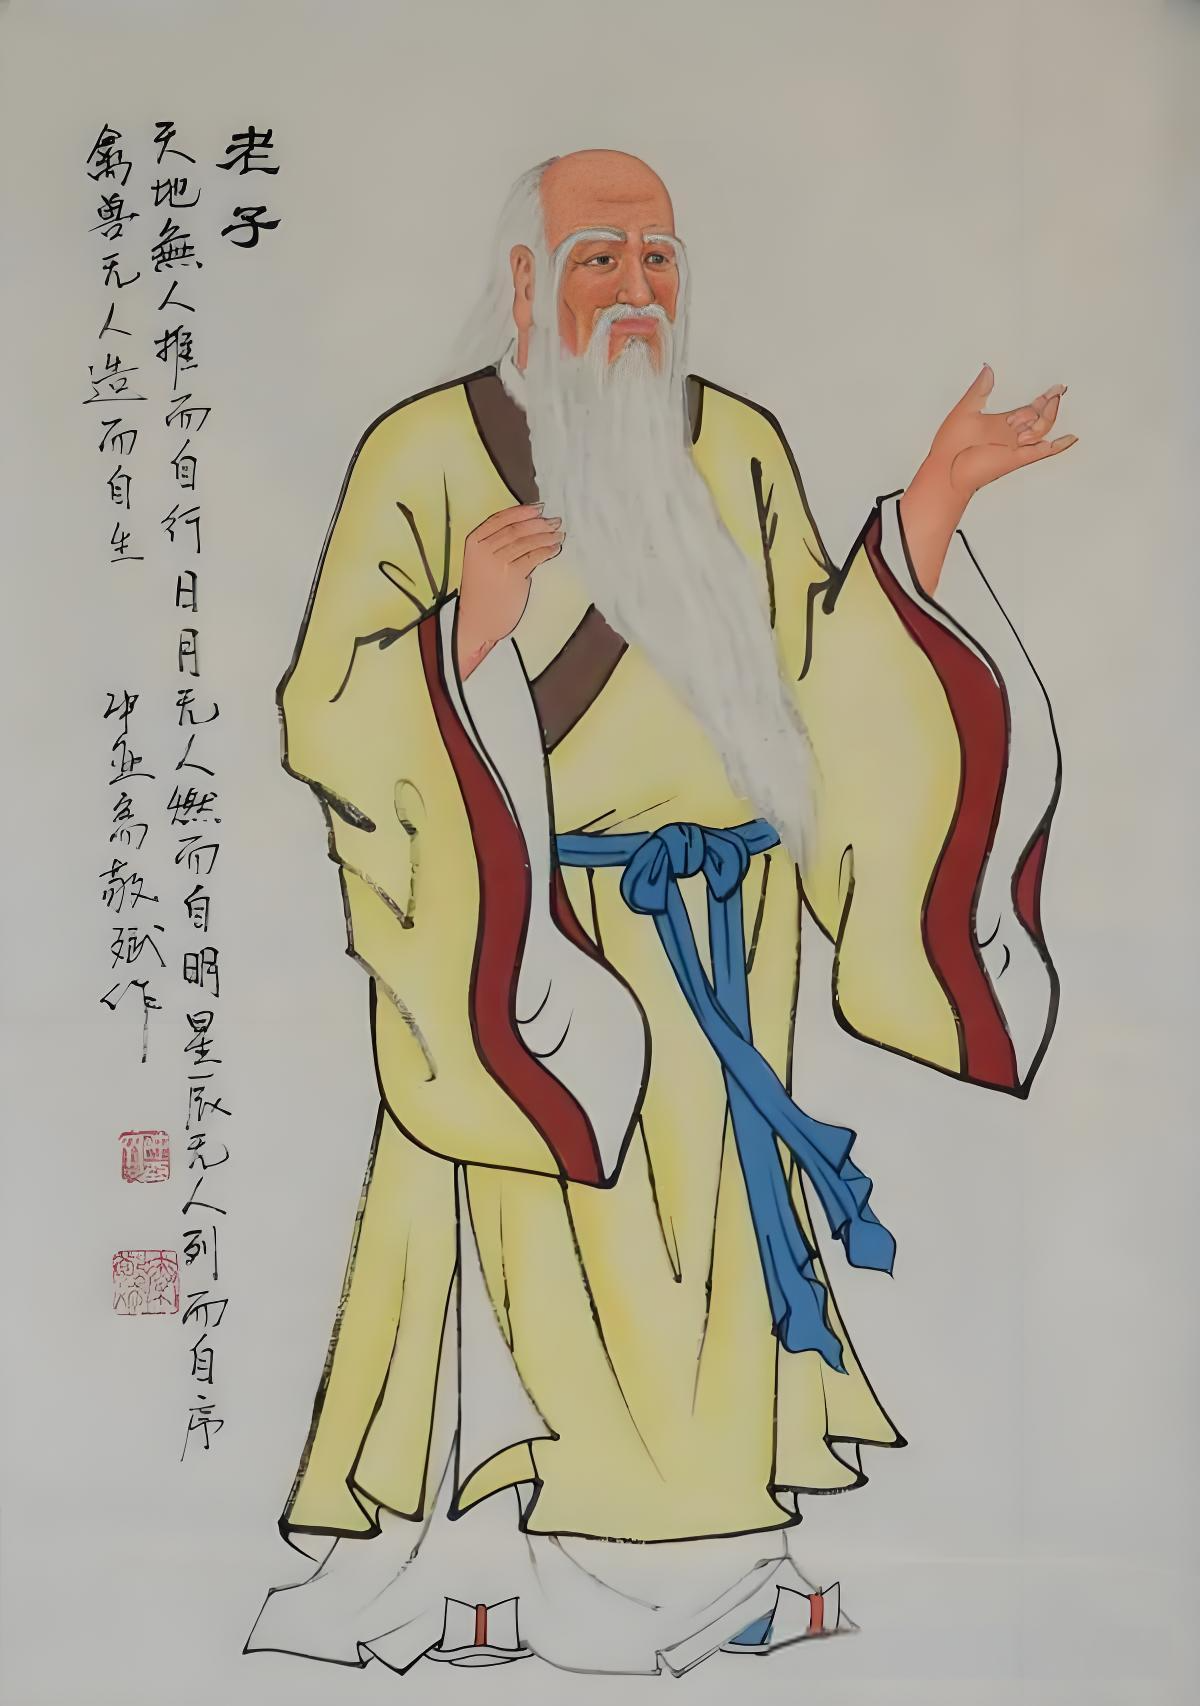 老子
天地無人推而自行日月无人燃而自明星辰无人列而自序
禽兽无人造而自生
高敬斌作